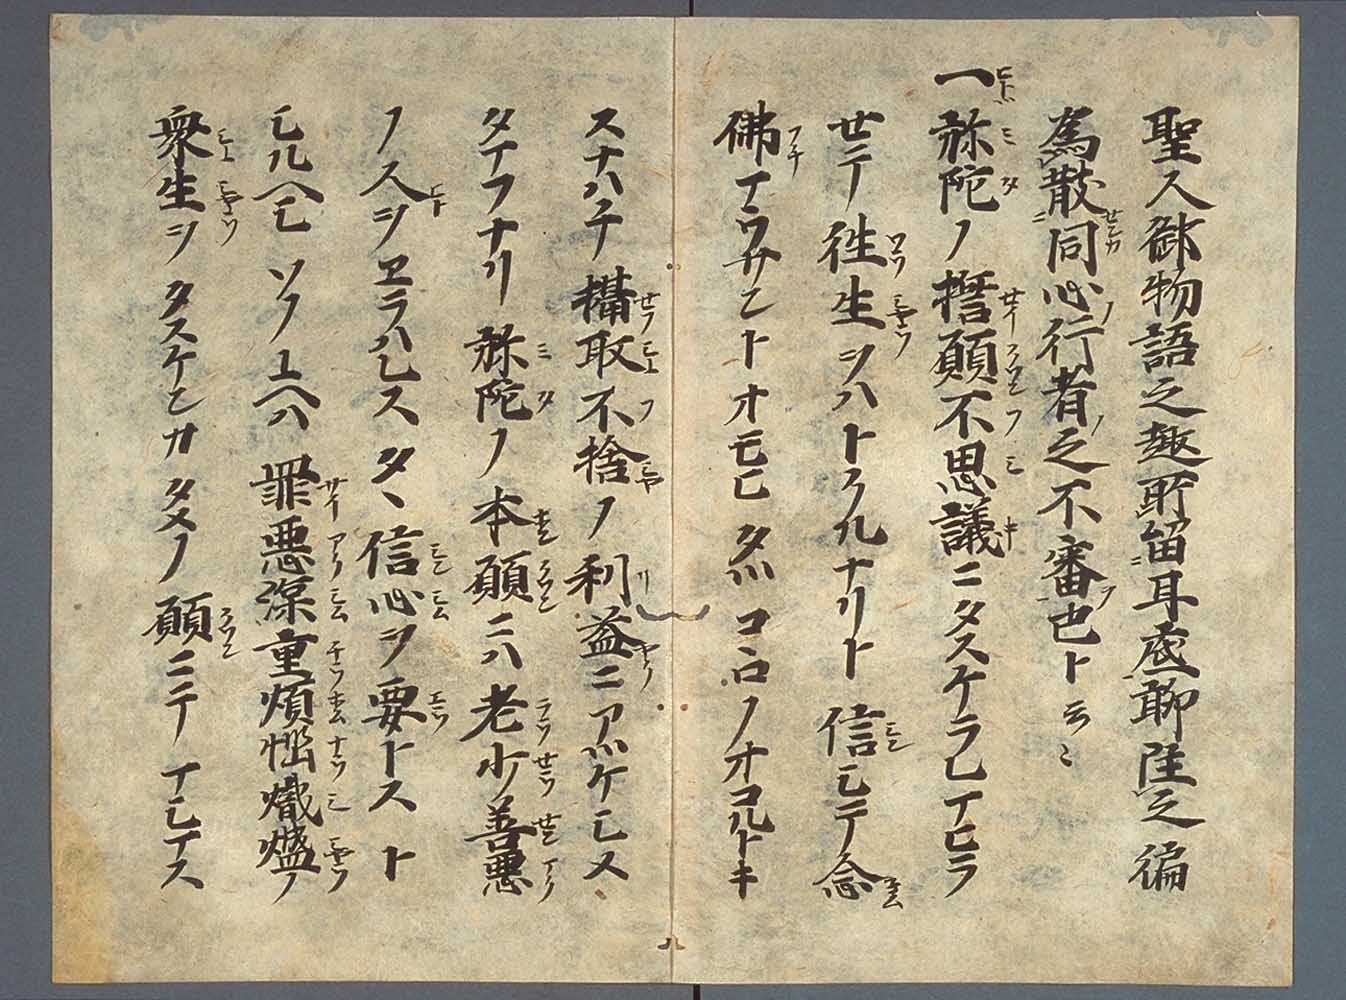 聖人御物語之趣所留耳底聊註之偏
為散同心行者之不審也ト云々
一弥陀ノ誓願不思議ニタスケラレマヒラ
セテ往生ヲハトクルナリト信シテ念
佛マウサントオモヒタツコヽロノオコルトキ
スナハチ攝取不捨ノ利益ニアツケシメ
タマフナリ弥陀ノ本願ニハ老少善悪
ノ人ヲヱラハレスタヽ信心ヲ要トスト
シルヘシソノユヘハ罪悪深重煩悩熾盛ノ
衆生ヲタスケンカタメノ願ニテマシマス